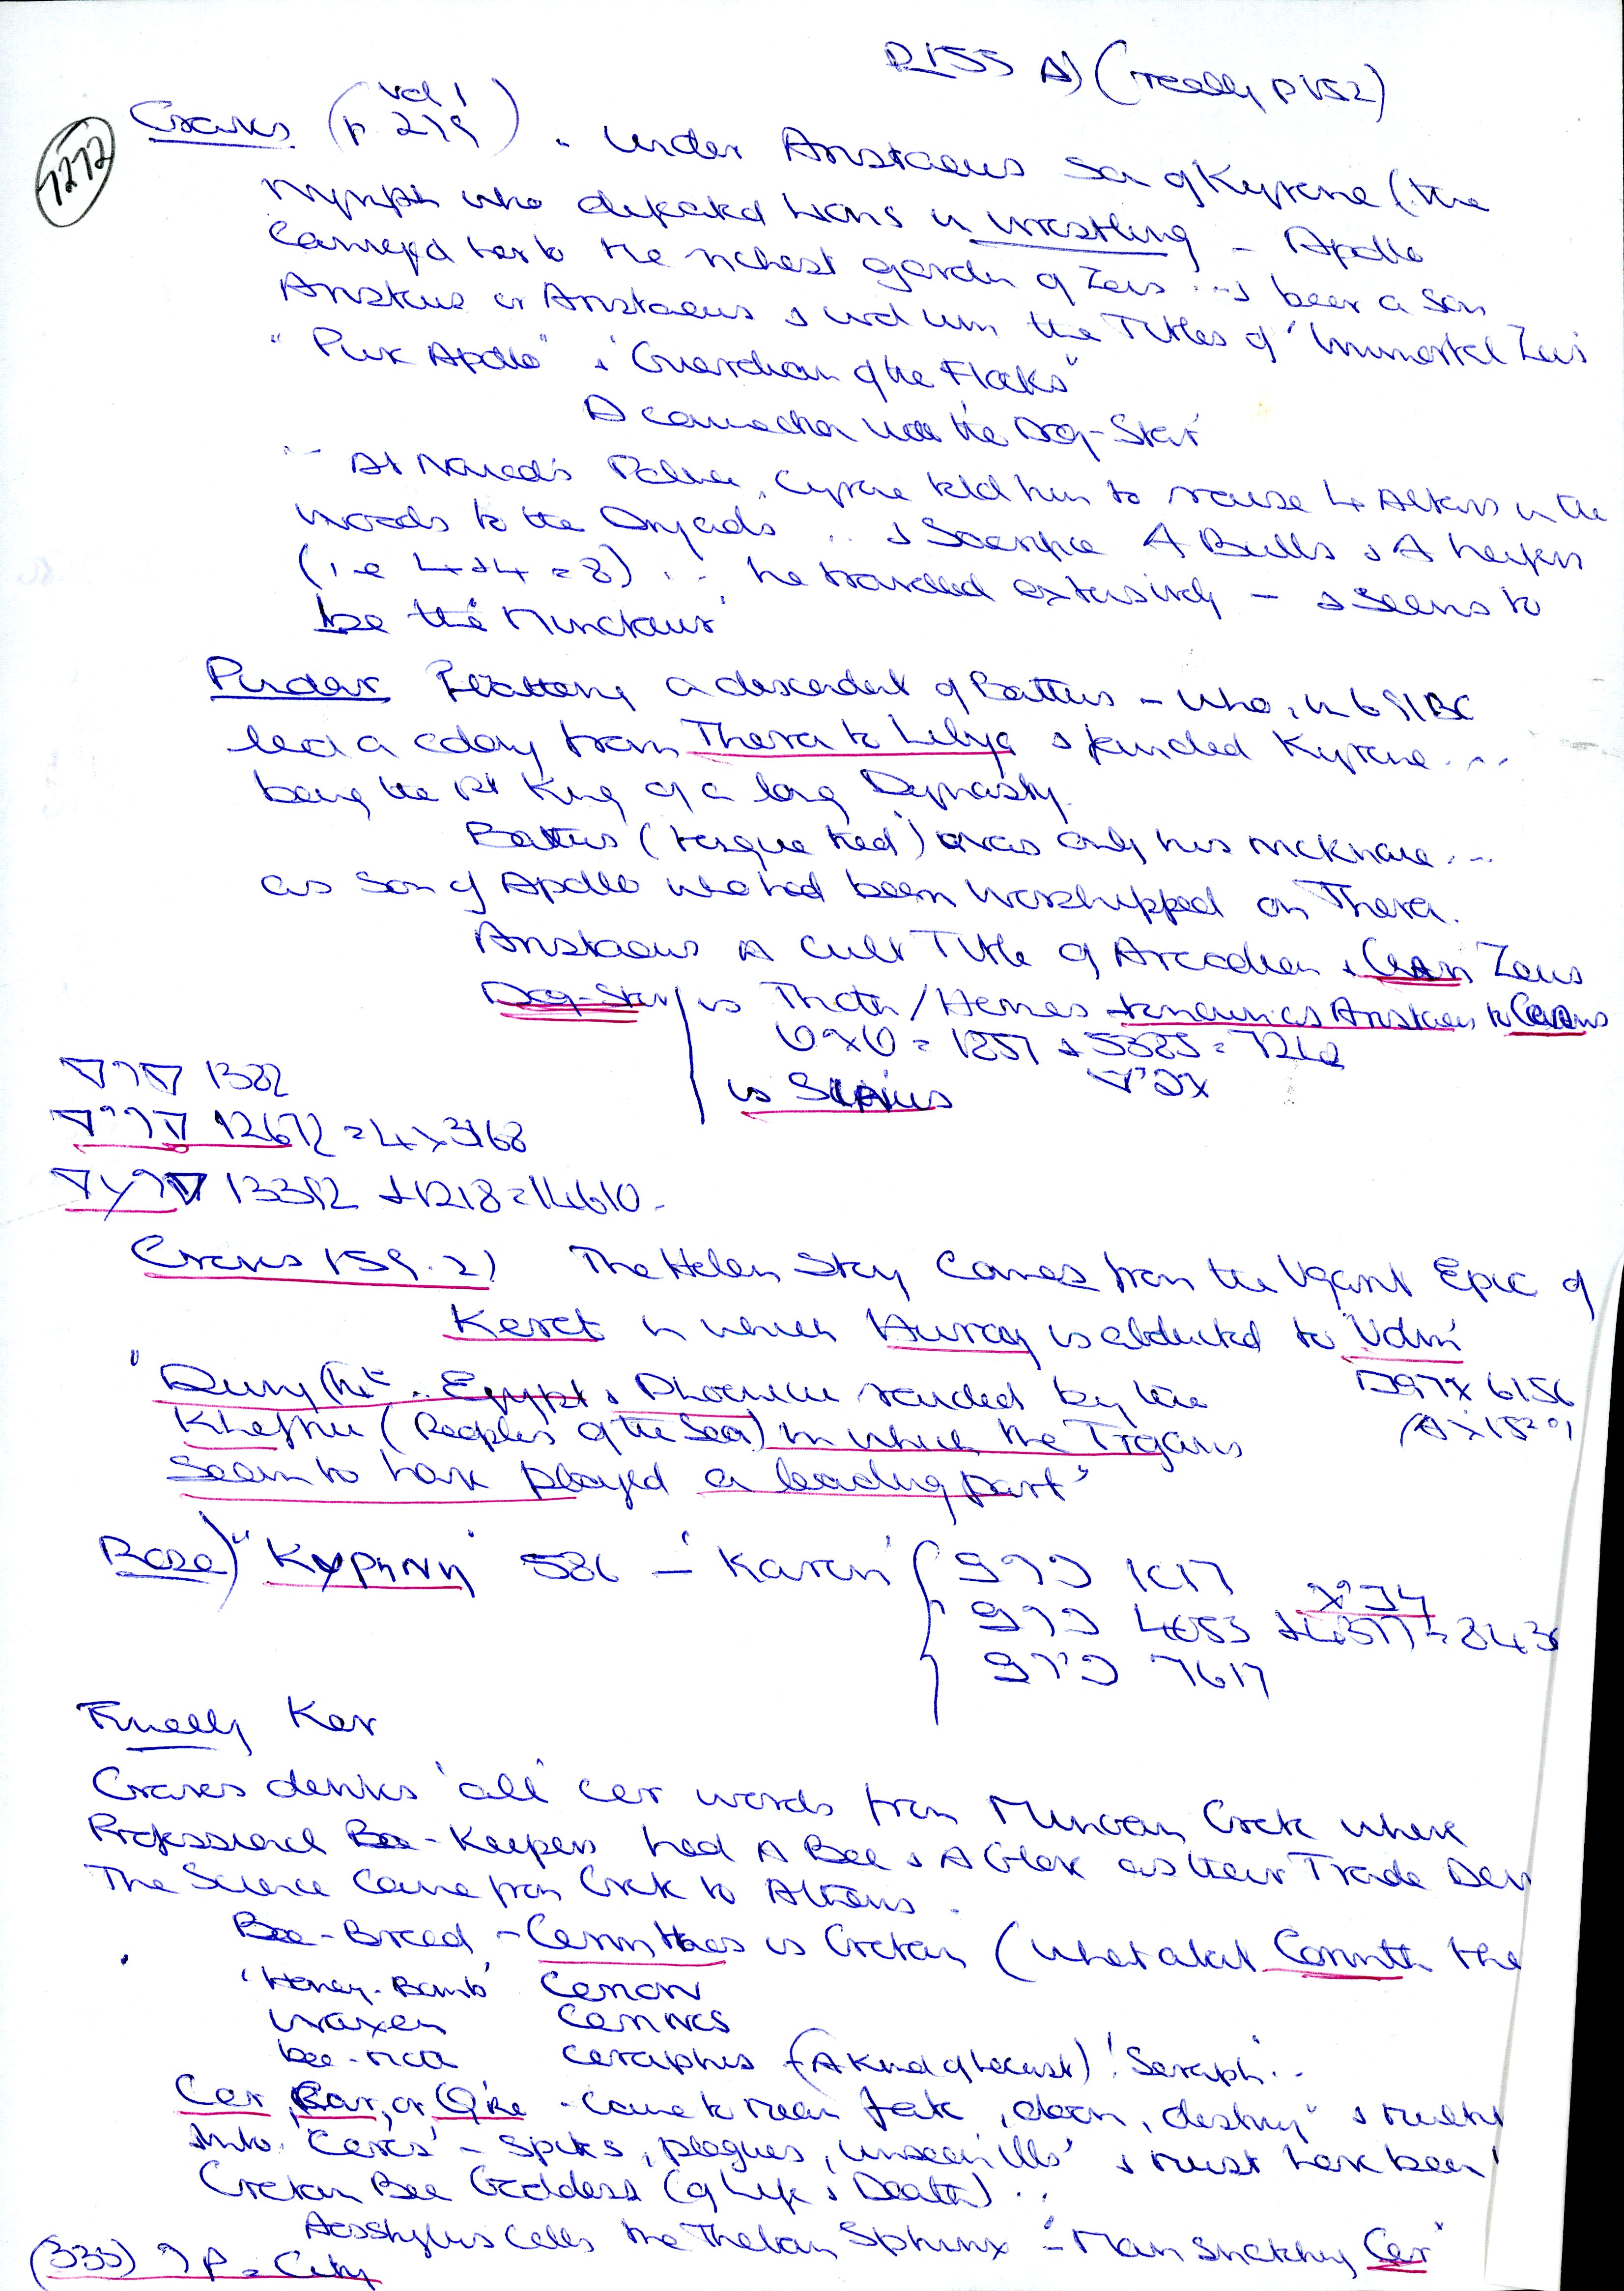 P155 A) (really p152)
7272
Graves (Vol 1 p. 279) . Under Aristaeus Son of Kyrene (the
Nymph who defeated Lions in wrestling - Apollo
carried her to the richest garden of Zeus ... & bear a Son
Aristeus or Aristaeus & him the Titles of 'Immortal Zeus'
"Pure Apollo" & 'Guardian of the Flocks"
A connection with the Dog-Star'
... At Palace, Cyrene told him to raise 4 Altars in the
woods to the Dryads .. & Sacrifice 4 Bulls & 4 heifers
(i.e 4+4 = 8) ... he travelled extensively - & seems to
be the 'Minotaur'
Pindar Flattering a descendent of Battus - who, in 691BC
lead a colony from Thera to Libya & founded Kyrene ...
being the 1st King of a long Dynasty.
Battus ('tongue tied') was only his nickname ...
as Son of Apollo who had been worshipped on Thera.
Aristaeus A Cult Title of Arcadian & Cean Zeus
Dog-Star is Thoth/Hermes known as Aristaeus to Ceans
= 1857 + 5385 = 7242
is Sirius
1382
12672 = 4 x 3168
13392 + 1218 = 14610 -
Graves 159.2) The Helen Story comes from the Ugarit Epic of
Keret in which Huray is abducted to 'Udm'
"During the .. Egypt & Phoenicia raided by the
6156
Kheftiu (Peoples of the Sea) in which the Trojans
seem to have played a leading part"
586 - 'Karen' 1017
4653 + 4377 = 8430
7617
Finally Ker
Graves derives 'all' cer words from Minoan Crete where
Professional Bee-Keepers had A Bee & A Goat as their Trade
The Science came from Crete to Athens .
Bee-Bread - Cerinthos is Cretan (what about Corinth the
'Honey-Bomb' Cerion
waxen Cerinos
bee-moth ceraphis - (A kind of Locust) ! 'Seraph' ..
Cer, Car, or Q're - came to mean fate, doom, destiny" &
into 'Ceres' - 'spites, plagues, unseen ills' & must have been
Cretan Bee Goddess (of Life & Death) ..
Aeschylus calls the Theban Sphinx - 'Man Snatching Cer'
(335) = City